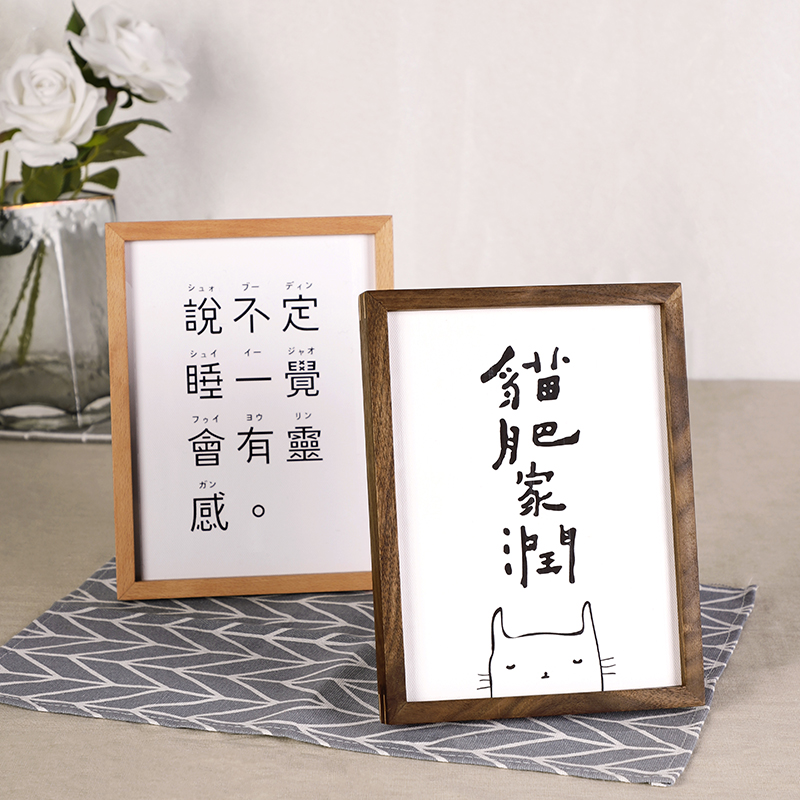 シュォ ブー ディン
說不定
シュイ イー ジャオ
睡一覺
フゥイ ヨウ リン
會有靈
ガン
感。
貓
肥
家
潤